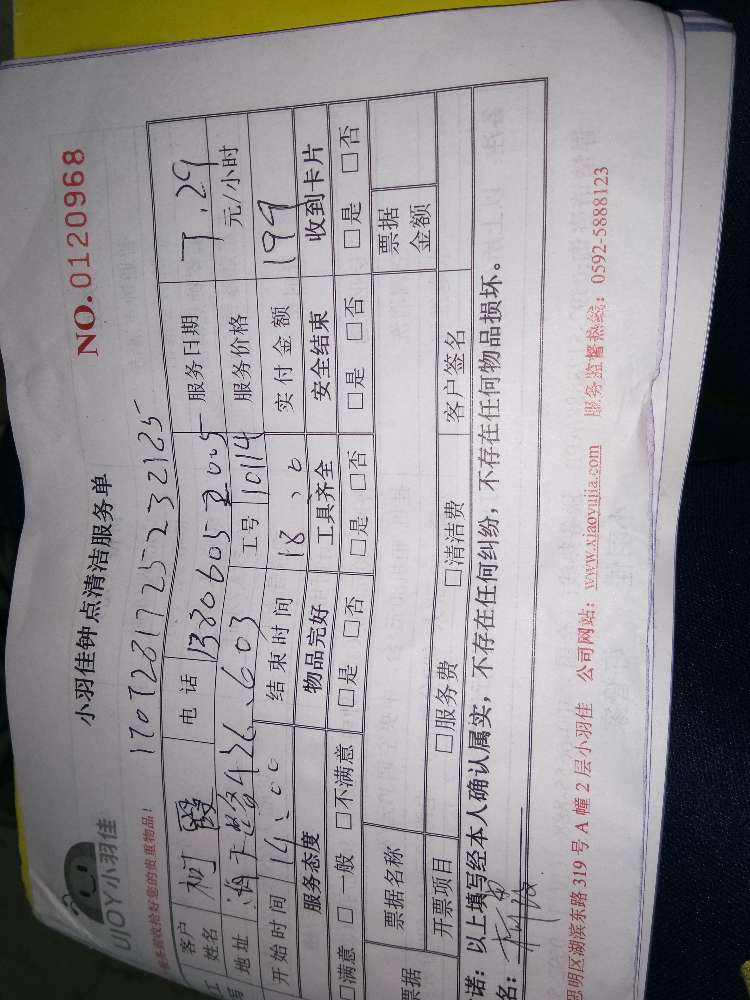 UJOY小羽佳
小羽佳钟点清洁服务单
NO.0120968
服务前收拾好您的贵重物品!
1707281725232185
客户姓名 柯 电话 服务日期 7.29
地址 603 工号 10114 服务价格 元/小时
开始时间 14:00 结束时间 18:00 实付金额 199
服务态度 物品完好 工具齐全 安全结束 收到卡片
□满意 □一般 □不满意 □是 □否 □是 □否 □是 □否 □是 □否
票据名称 票据金额
票据 开票项目 □服务费 □清洁费 客户签名
诺:以上填写经本人确认属实,不存在任何纠纷,不存在任何物品损坏。
名:
思明区湖滨东路319号A幢2层小羽佳 公司网站:www.xiaoyujia.com 服务监督热线:0592-5888123